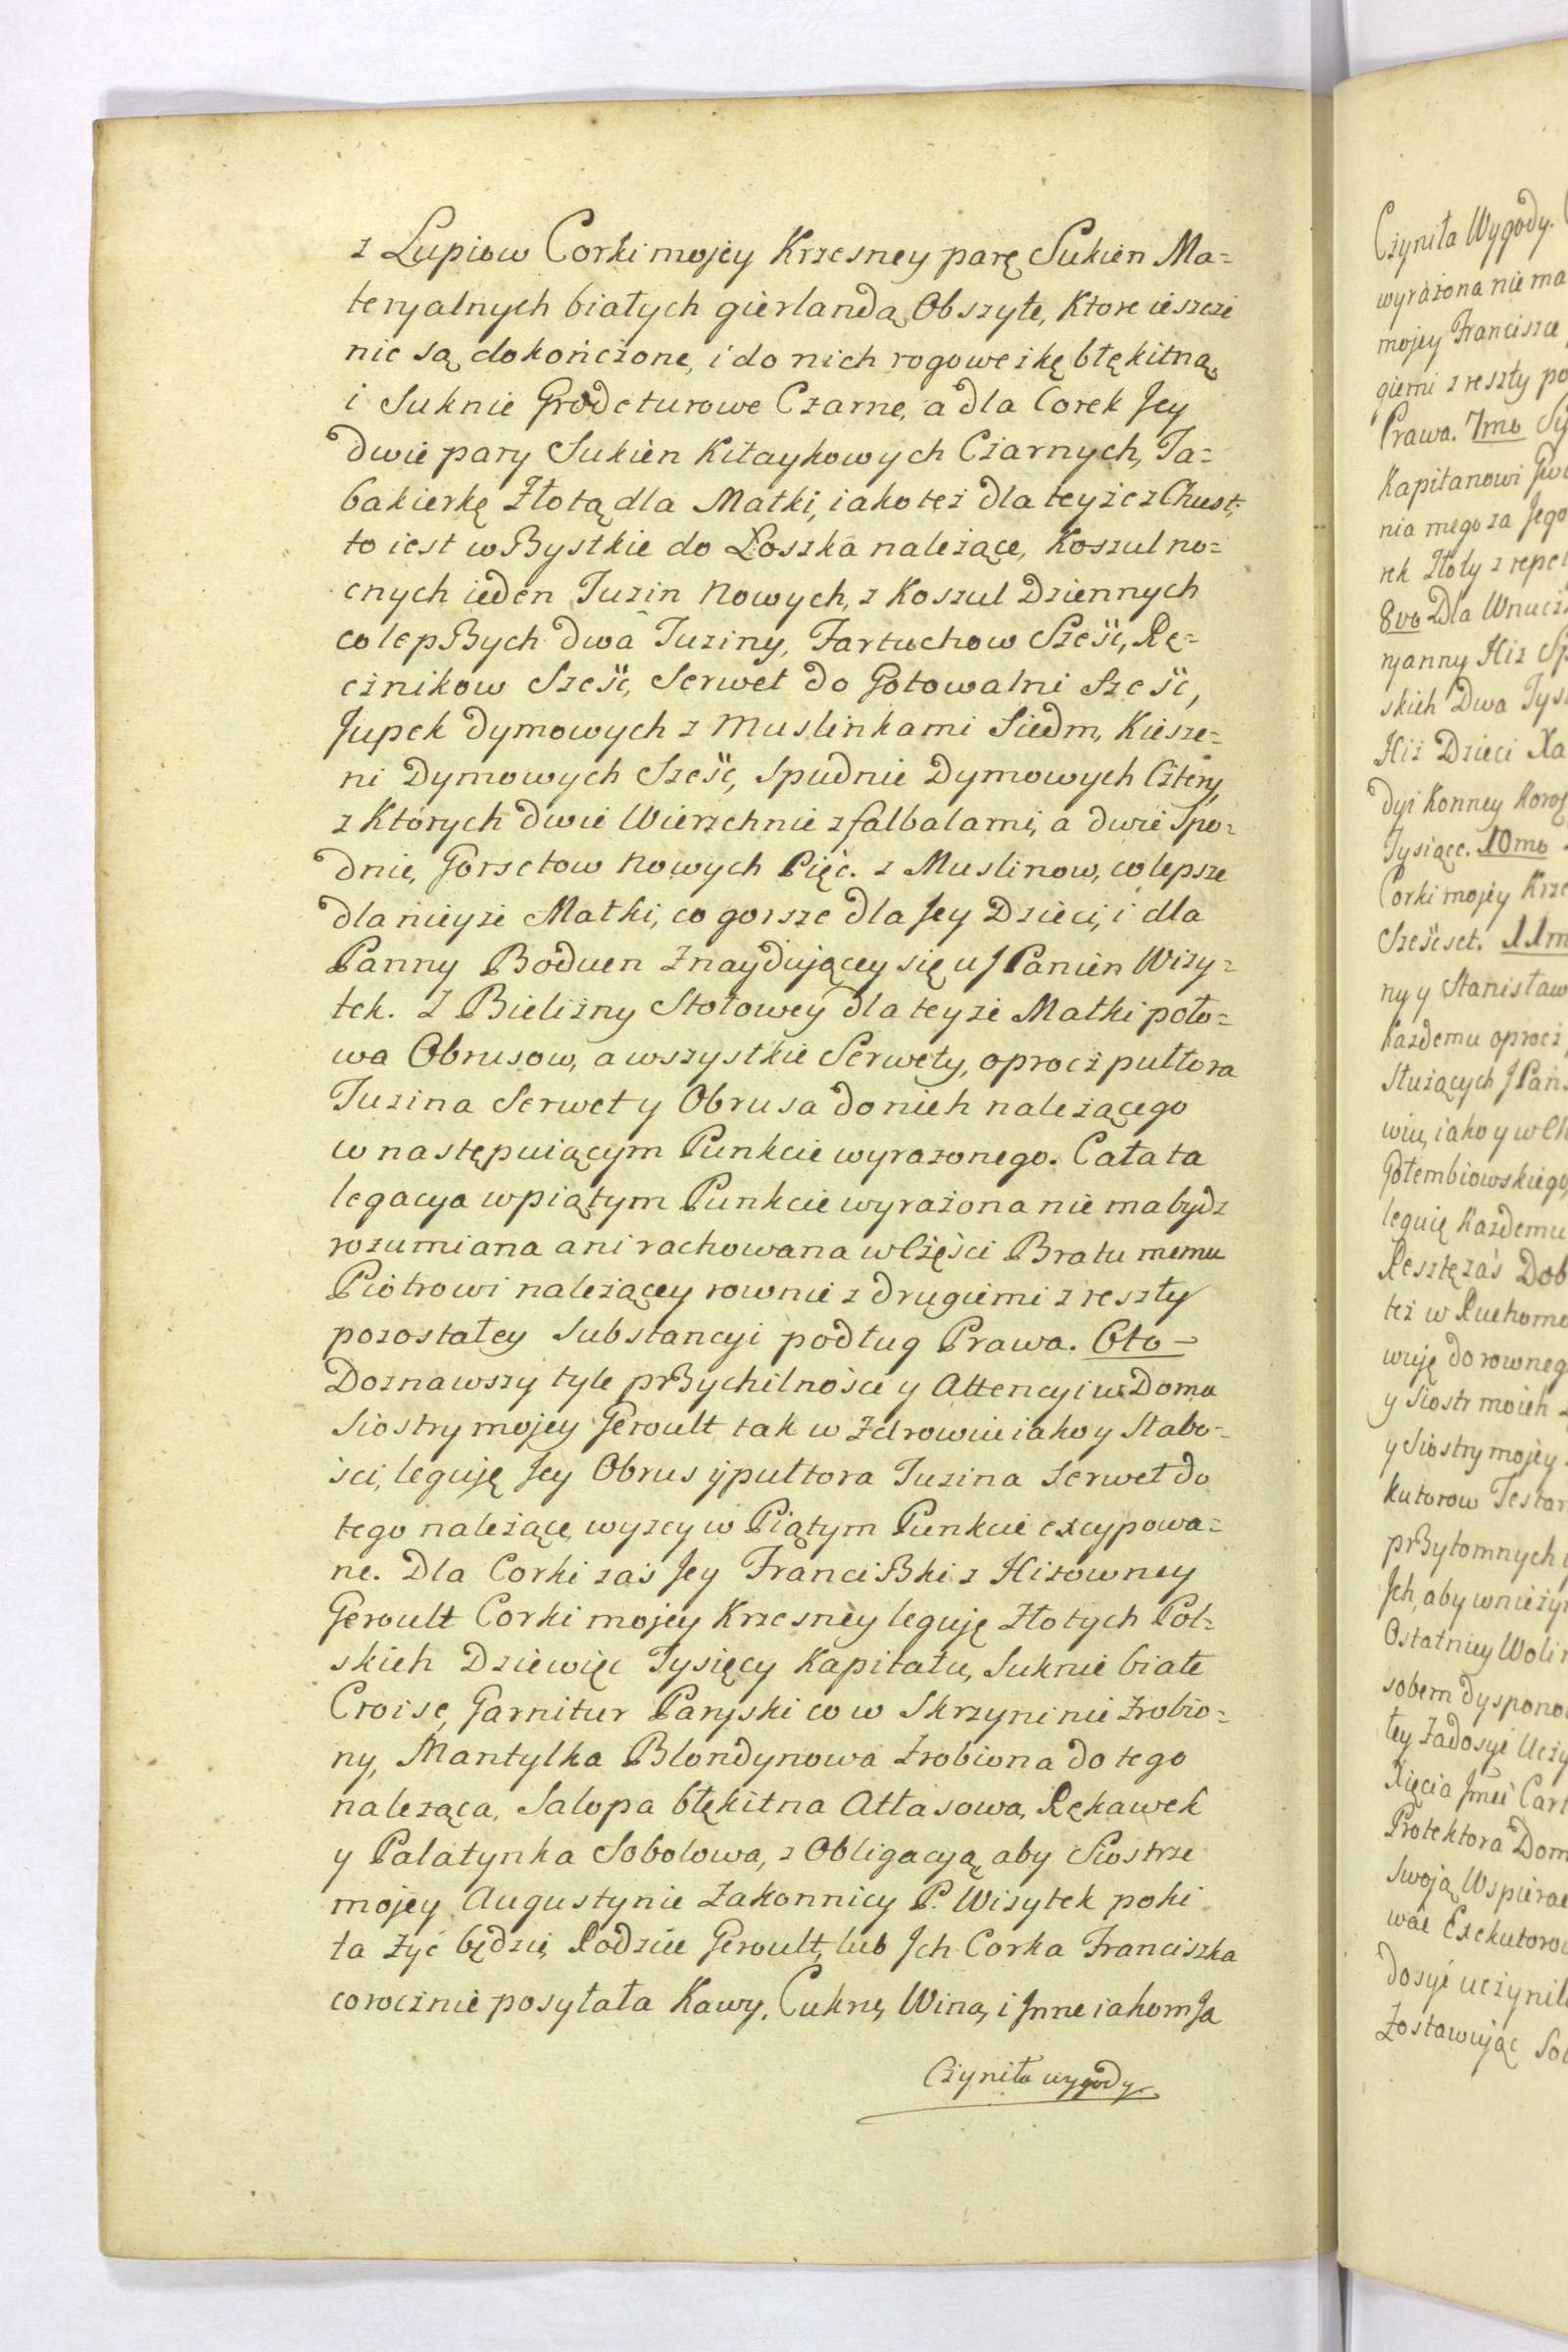 z Lupiow Corki mojey Krzesney parę Sukien Ma=
teryalnych białych gierlandą Obszyte, Ktore ieszcze
nie są dokończone, i do nich rogoweżkę błękitną,
i Suknie Grodeturowe Czarne, a dla Corek Jey
dwie pary Sukien Kitaykowych Czarnych, Ta=
bakierkę Złotą dla Matki, iako też dla teyże z Chust,
to iest wßystkie do Łoszka należące, Koszul no=
cnych ieden Tuzin Nowych, z Koszul Dziennych
co lepßych dwa Tuziny, Fartuchow Sześć, Rę=
cznikow Sześć, Serwet do Gotowalni Sześć,
Jupek dymowych z Muslinkami Siedm, Kiesze=
ni Dymowych Sześć, Spudnic Dymowych Cztery,
z Których dwie Wierzchnie z falbalami, a dwie Spo=
dnie, Gorsetow Nowych Pięć. z Muslinow, co lepsze
dla nieyże Matki, co gorsze dla Jey Dzieci, i dla
Panny Boduen Znaydującey się u J Panien Wizy=
tek. Z Bielizny Stołowey dla teyże Matki poło=
wa Obrusow, a wszystkie Serwety, oprocz pułtora
Tuzina Serwet y Obrusa do nich należącego
w następuiącym Punkcie wyrażonego. Cała ta
legacya w piątym Punkcie wyrażona nie ma bydz
rozumiana ani rachowana w Części Bratu memu
Piotrowi należącey rownie z drugiemi z reszty
pozostałey Substancyi podług Prawa. 6to —
Doznawszy tyle prßychilności y Attencyi w Domu
Siostry mojey Geroult tak w Zdrowiu iako y Słabo=
ści, leguję Jey Obrus y pułtora Tuzina Serwet do
tego należące, wyzey w Piątym Punkcie excypowa=
ne. Dla Corki zaś Jey Francißki z Hizowney
Geroult Corki mojey Krzesney leguję Złotych Pol=
skich Dziewięć Tysięcy Kapitału, Suknie białe
Croise, Garnitur Paryski co w Skrzyni nie zrobio=
ny, Mantylka Blondynowa zrobiona do tego
należąca, Salopa błękitna Atłasowa, Rękawek
y Palatynka Sobolowa, z Obligacyą, aby Siostrze
mojey Augustynie Zakonnicy P. Wizytek poki
ta żyć będzie, Rodzice Geroult, lub Jch Corka Franciszka
corocznie posyłała Kawy, Cukru, Wina, i Jnne iakom Ja
Czyniła wygody.
Czyniła Wygody.
wyrażona nie ma
mojey Francisce
giemi z reszty po
Prawa. 7mo
Kapitanowi
nia mego za Jego
rek Złoty z repet
8vo Dla Wnucz
ryanny Hiz
skich Dwa Tys
Hiz Dzieci Xa
dyi Konney
Tysiące. 10mo
Corki mojey Krze
Sześćset. 11m
ny y Stanisław
Każdemu oprocz
Służących J Pan
wiu, iako y w
Gołembiowskiego
leguię Każdemu
Resztę zaś Dob
też w Ruchomo
wuję do rowneg
y Siostr moich
y Siostry mojey
kutorow Testa
prßytomnych
Jch, aby
Ostatniey Woli
sobem dyspono
tey zadosyć Uczy
Xięcia Jmci Car
Protektora Dom
Swoją Wspierac
wać Exekutorow
dosyć uczynił
Zostawując